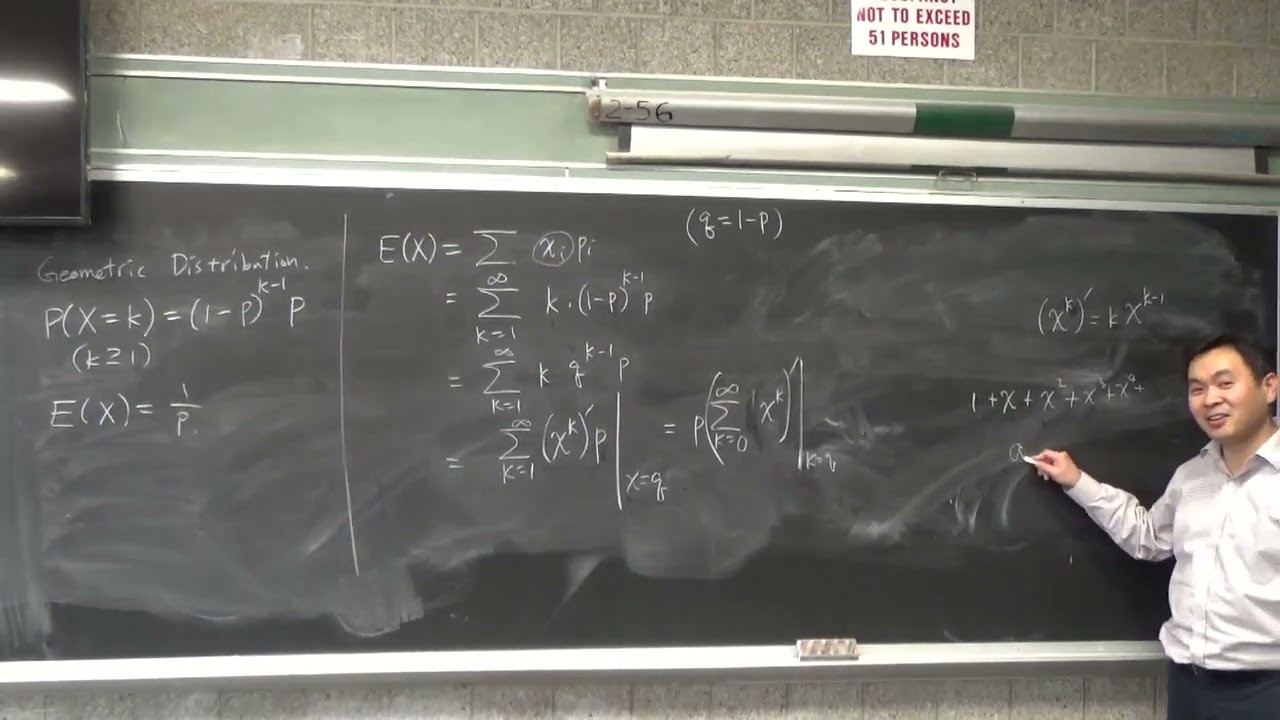 NOT TO EXCEED
51 PERSONS
2-56
Geometric Distribution.
P(X=k)=(1-p)^{k-1} p
(k≥1)
E(X)=\frac{1}{p}.
E(X)=∑ x_i p_i
(q=1-p)
=∑_{k=1}^{∞} k·(1-p)^{k-1} p
=∑_{k=1}^{∞} k q^{k-1} p
=∑_{k=1}^{∞} (x^k)' p |_{x=q} = p(∑_{k=0}^{∞} x^k)' |_{k=q}
(x^k)'=k x^{k-1}
1+x+x^2+x^3+x^4+
a